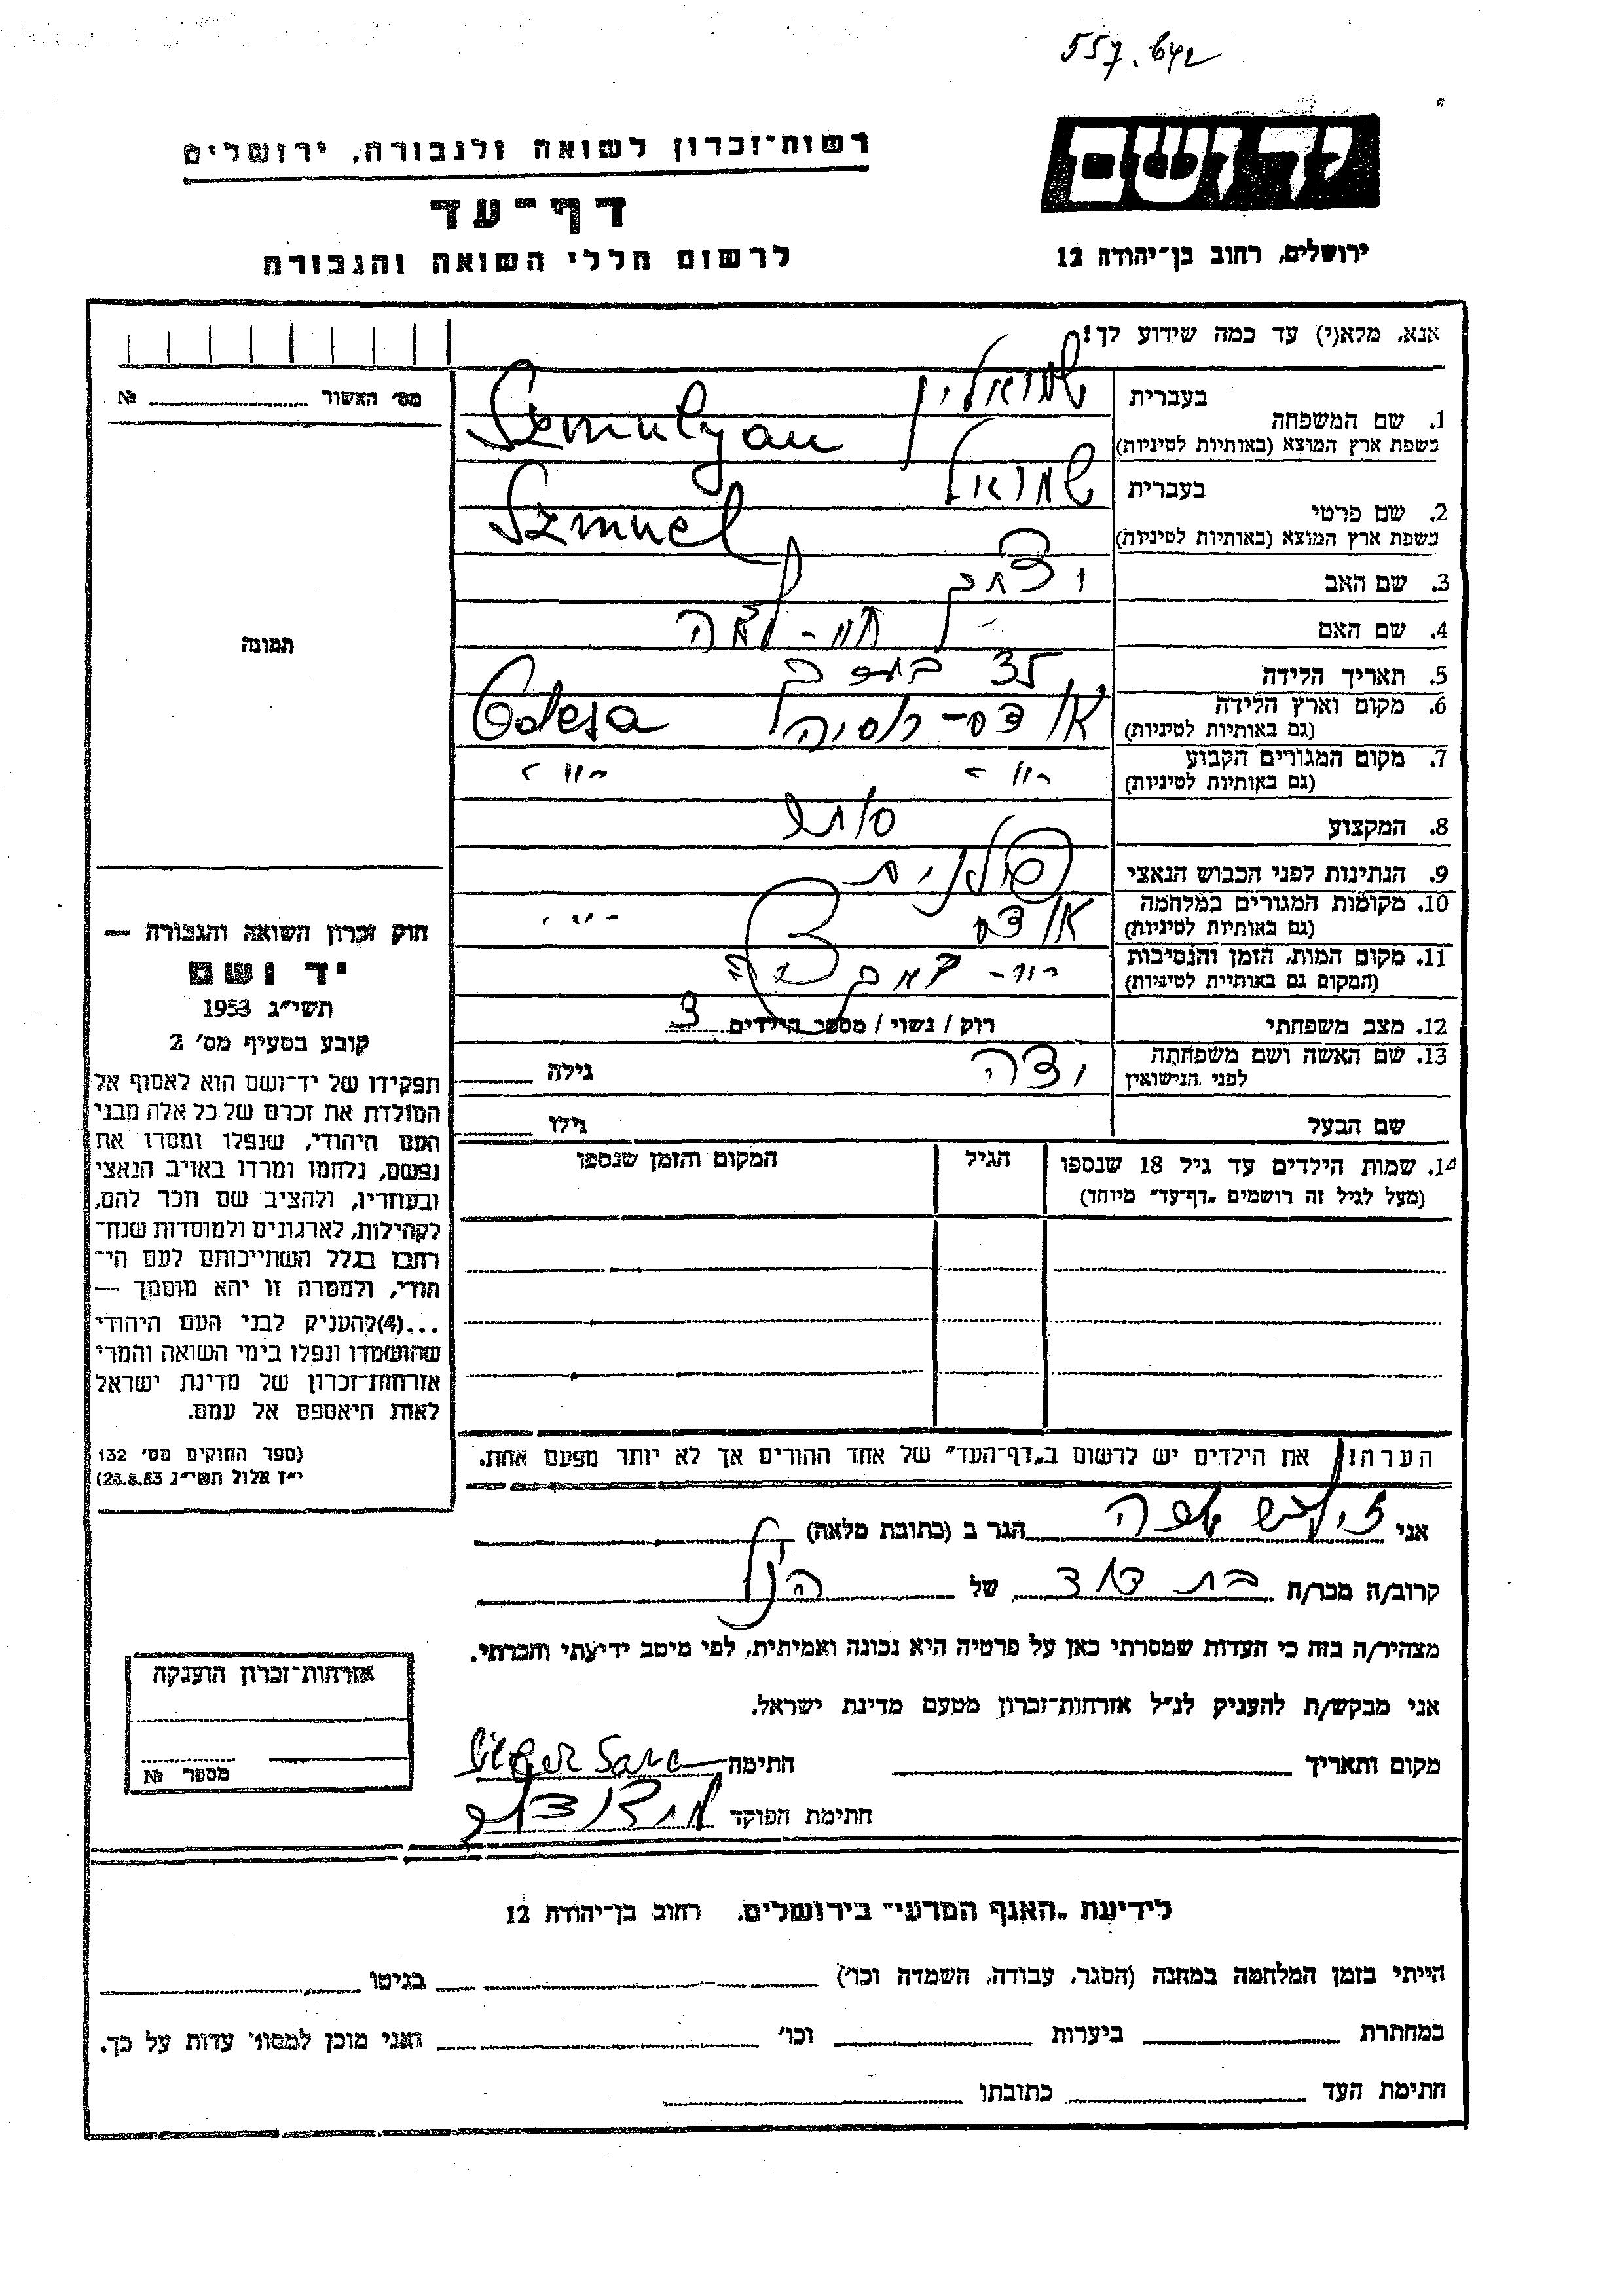 557.642
יד ושם
רשות־זכרון לשואה ולגבורה, ירושלים
דף־עד
לרשום חללי השואה והגבורה
ירושלים, רחוב בן־יהודה 12
אנא, מלא(י) עד כמה שידוע לך!
מס' האשור № 
1. שם המשפחה בעברית שמואליאן
בשפת ארץ המוצא (באותיות לטיניות) Szmulyan
2. שם פרטי בעברית שמואל
בשפת ארץ המוצא (באותיות לטיניות) Szmuel
3. שם האב
4. שם האם חיה-
תמונה
5. תאריך הלידה 35
6. מקום וארץ הלידה (גם באותיות לטיניות) אודסה - רוסיה Odesa
7. מקום המגורים הקבוע (גם באותיות לטיניות) -"- -"-
8. המקצוע סוחר
9. הנתינות לפני הכבוש הנאצי פולנית
10. מקומות המגורים במלחמה (גם באותיות לטיניות) אודס -"-
11. מקום המות, הזמן והנסיבות (המקום גם באותיות לטיניות) -"-
12. מצב משפחתי רוק / נשוי / מספר הילדים 3
13. שם האשה ושם משפחתה לפני הנישואין גילה
שם הבעל גילו
14. שמות הילדים עד גיל 18 שנספו הגיל המקום והזמן שנספו
(מעל לגיל זה רושמים „דף־עד" מיוחד)
חוק זכרון השואה והגבורה —
יד ושם
תשי"ג 1953
קובע בסעיף מס' 2
תפקידו של יד־ושם הוא לאסוף אל
המולדת את זכרם של כל אלה מבני
העם היהודי, שנפלו ומסרו את
נפשם, נלחמו ומרדו באויב הנאצי
ובעוזריו, ולהציב שם וזכר להם,
לקהילות, לארגונים ולמוסדות שנח־
רבו בגלל השתייכותם לעם הי־
הודי, ולמטרה זו יהא מוסמך —
...(4)להעניק לבני העם היהודי
שהושמדו ונפלו בימי השואה והמרי
אזרחות־זכרון של מדינת ישראל
לאות היאספם אל עמם.
(ספר החוקים מס' 132
י"ז אלול תשי"ג 28.8.53)
הערה: את הילדים יש לרשום ב„דף־העד" של אחד ההורים אך לא יותר מפעם אחת.
אני הגר ב (כתובת מלאה)
קרוב/ה מכר/ה בת דוד של הנ"ל
מצהיר/ה בזה כי העדות שמסרתי כאן על פרטיה היא נכונה ואמיתית, לפי מיטב ידיעתי והכרתי.
אני מבקש/ת להעניק לנ"ל אזרחות־זכרון מטעם מדינת ישראל.
מקום ותאריך חתימה
חתימת הפוקד
אזרחות־זכרון הוענקה
מספר №
לידיעת „האגף המדעי" בירושלים, רחוב בן־יהודה 12
הייתי בזמן המלחמה במחנה (הסגר, עבודה, השמדה וכו') בגיטו
במחתרת ביערות וכו' ואני מוכן למסור עדות על כך.
חתימת העד כתובתו